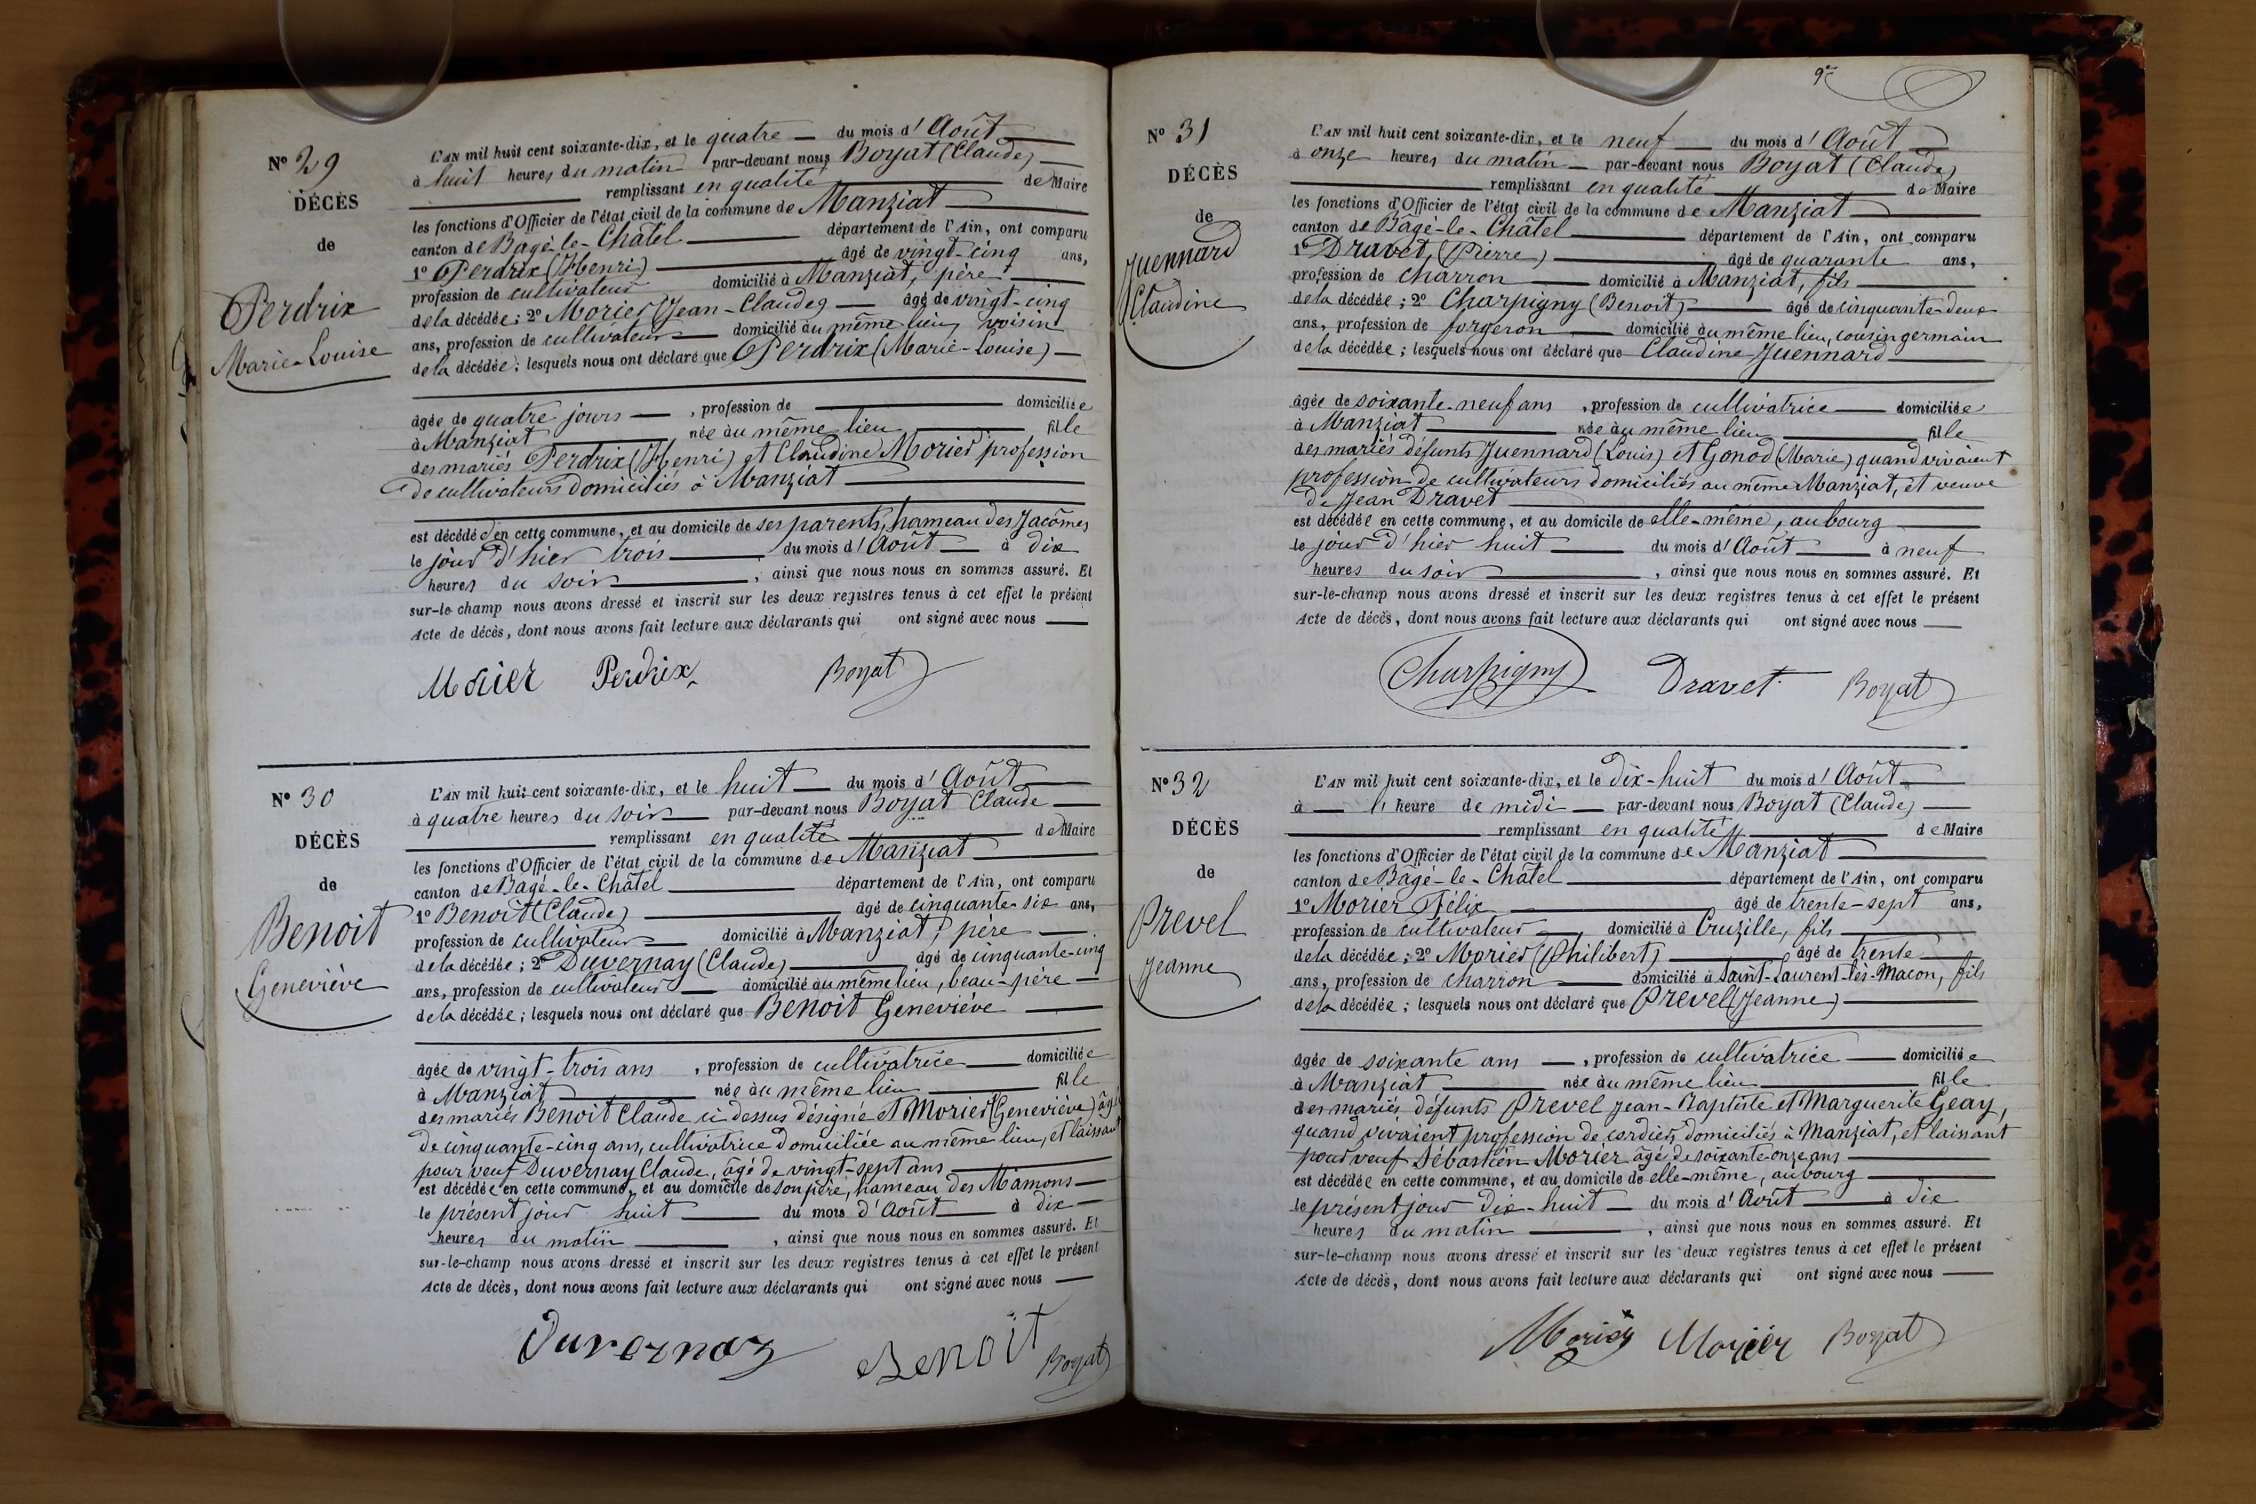 N° 29
DÉCÈS
de
Perdrix
Marie-Louise
L'AN mil huit cent soixante-dix, et le quatre du mois d'Août
à huit heures du matin par-devant nous Boyat (Claude)
remplissant en qualité de Maire
les fonctions d'Officier de l'état civil de la commune de Manziat
canton de Bagé-le-Châtel département de l'Ain, ont comparu
1° Perdrix (Henri) âgé de vingt-cinq ans,
profession de cultivateur domicilié à Manziat, père
de la décédée; 2° Morier (Jean-Claude) âgé de vingt-cinq
ans, profession de cultivateur domicilié au même lieu, voisin
de la décédée; lesquels nous ont déclaré que Perdrix (Marie-Louise)
âgée de quatre jours, profession de domiciliée
à Manziat née au même lieu fille
des mariés Perdrix (Henri) et Claudine Morier profession
de cultivateurs domiciliés à Manziat
est décédée en cette commune, et au domicile de ses parents, hameau des Jacômes
le jour d'hier trois du mois d'Août à dix
heures du soir, ainsi que nous nous en sommes assuré. Et
sur-le-champ nous avons dressé et inscrit sur les deux registres tenus à cet effet le présent
Acte de décès, dont nous avons fait lecture aux déclarants qui ont signé avec nous
Morier Perdrix Boyat
N° 30
DÉCÈS
de
Benoit
Geneviève
L'AN mil huit cent soixante-dix, et le huit du mois d'Août
à quatre heures du soir par-devant nous Boyat Claude
remplissant en qualité de Maire
les fonctions d'Officier de l'état civil de la commune de Manziat
canton de Bagé-le-Châtel département de l'Ain, ont comparu
1° Benoit (Claude) âgé de cinquante-six ans,
profession de cultivateur domicilié à Manziat, père
de la décédée; 2° Duvernay (Claude) âgé de cinquante-cinq
ans, profession de cultivateur domicilié au même lieu, beau-père
de la décédée; lesquels nous ont déclaré que Benoit Geneviève
âgée de vingt-trois ans, profession de cultivatrice domiciliée
à Manziat née au même lieu fille
des mariés Benoit Claude ci-dessus désigné et Morier (Geneviève) âgée
de cinquante-cinq ans, cultivatrice domiciliée au même lieu, et laissant
pour veuf Duvernay Claude, âgé de vingt-sept ans
est décédée en cette commune, et au domicile de son père, hameau des Mamons
le présent jour huit du mois d'Août à dix
heures du matin, ainsi que nous nous en sommes assuré. Et
sur-le-champ nous avons dressé et inscrit sur les deux registres tenus à cet effet le présent
Acte de décès, dont nous avons fait lecture aux déclarants qui ont signé avec nous
Duvernay Benoit Boyat
N° 31
DÉCÈS
de
Juennard
Claudine
L'AN mil huit cent soixante-dix, et le neuf du mois d'Août
à onze heures du matin par-devant nous Boyat (Claude)
remplissant en qualité de Maire
les fonctions d'Officier de l'état civil de la commune de Manziat
canton de Bâgé-le-Châtel département de l'Ain, ont comparu
1° Dravet, (Pierre) âgé de quarante ans,
profession de charron domicilié à Manziat, fils
de la décédée; 2° Charpigny (Benoit) âgé de cinquante-deux
ans, profession de forgeron domicilié au même lieu, cousin germain
de la décédée; lesquels nous ont déclaré que Claudine Juennard
âgée de soixante-neuf ans, profession de cultivatrice domiciliée
à Manziat née au même lieu fille
des mariés défunts Juennard (Louis) et Gonod (Marie) quand vivaient
profession de cultivateurs domiciliés au même Manziat, et veuve
de Jean Dravet
est décédée en cette commune, et au domicile de elle-même, au bourg
le jour d'hier huit du mois d'Août à neuf
heures du soir, ainsi que nous nous en sommes assuré. Et
sur-le-champ nous avons dressé et inscrit sur les deux registres tenus à cet effet le présent
Acte de décès, dont nous avons fait lecture aux déclarants qui ont signé avec nous
Charpigny Dravet Boyat
N° 32
DÉCÈS
de
Prevel
Jeanne
L'AN mil huit cent soixante-dix, et le dix-huit du mois d'Août
à l'heure de midi par-devant nous Boyat (Claude)
remplissant en qualité de Maire
les fonctions d'Officier de l'état civil de la commune de Manziat
canton de Bâgé-le-Châtel département de l'Ain, ont comparu
1° Morier Félix âgé de trente-sept ans,
profession de cultivateur, domicilié à Cruzille, fils
de la décédée; 2° Morier (Philibert) âgé de trente
ans, profession de charron domicilié à Saint-Laurent-lès-Macon, fils
de la décédée; lesquels nous ont déclaré que Prevel (Jeanne)
âgée de soixante ans, profession de cultivatrice domiciliée
à Manziat née au même lieu fille
des mariés défunts Prevel Jean-Baptiste et Marguerite Geay,
quand vivaient profession de cordiers, domiciliés à Manziat, et laissant
pour veuf Sébastien Morier âgé de soixante-onze ans
est décédée en cette commune, et au domicile de elle-même, au bourg
le présent jour dix-huit du mois d'Août à dix
heures du matin, ainsi que nous nous en sommes assuré. Et
sur-le-champ nous avons dressé et inscrit sur les deux registres tenus à cet effet le présent
Acte de décès, dont nous avons fait lecture aux déclarants qui ont signé avec nous
Morier Morier Boyat